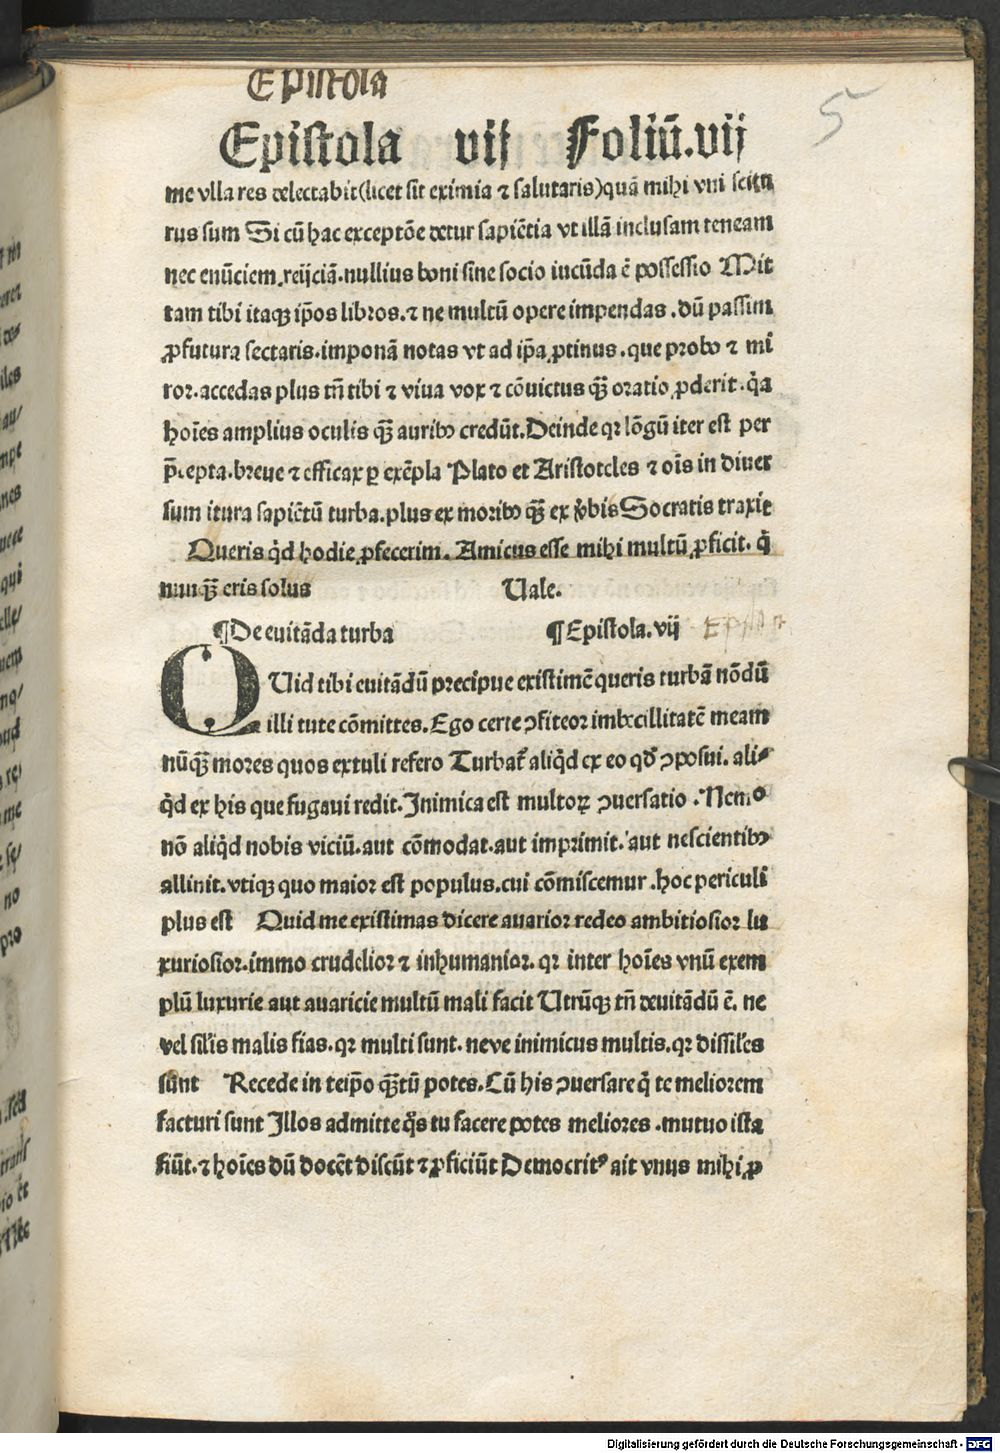 Epistola
5
Epistola vij Foliū.vij
me vlla res delectabit(licet sit eximia ⁊ salutaris)quā mihi vni scitu
rus sum Si cū hac exceptōe detur sapiētia vt illā inclusam teneam
nec enūciem.reijciā.nullius boni sine socio iucūda ē possessio Mit
tam tibi itaqꝫ ip̄os libros.⁊ ne multū opere impendas.dū passim
ꝓfutura sectaris.imponā notas vt ad ip̄a ꝓtinus.que probo ⁊ mi
ror.accedas plus tn̄ tibi ⁊ viua vox ⁊ cōuictus qꝫ̄ oratio ꝓderit.q̄a
hoīes amplius oculis qꝫ̄ auribꝰ credūt.Deinde qꝛ lōgū iter est per
p̄cepta.breue ⁊ efficax ꝑ exēpla Plato et Aristoteles ⁊ oīs in diuer
sum itura sapiētū turba.plus ex moribꝰ qꝫ̄ ex v̄bis Socratis traxit
Queris qͥd hodie ꝓfecerim. Amicus esse mihi multū ꝓficit. qͥ
nunqꝫ̄ eris solus Uale.
¶De euitāda turba ¶Epistola.vij
QUid tibi euitādū precipue existimē queris turbā nōdū
illi tute cōmittes.Ego certe ꝯfiteor imbecillitatē meam
nūqꝫ̄ mores quos extuli refero Turbat̄ aliqͥd ex eo qđ ꝯposui. ali⸗
qͥd ex his que fugaui redit.Inimica est multoꝝ ꝯuersatio.Nemo
nō aliqͥd nobis viciū.aut cōmodat.aut imprimit.aut nescientibꝰ
allinit.vtiqꝫ quo maior est populus.cui cōmiscemur.hoc periculi
plus est Quid me existimas dicere auarior redeo ambitiosior lu
xuriosior.immo crudelior ⁊ inhumanior. qꝛ inter hoīes vnū exem
plū luxurie aut auaricie multū mali facit Utrūqꝫ tn̄ deuitādū ē. ne
vel sil̄is malis fias. qꝛ multi sunt. neve inimicus multis.qꝛ dissil̄es
sunt Recede in teip̄o qꝫ̄tū potes.Cū his ꝯuersare qͥ te meliorem
facturi sunt Illos admitte qͦs tu facere potes meliores.mutuo ista
fiūt.⁊ hoīes dū docēt discūt ⁊ ꝓficiūt Democritꝰ ait vnus mihi ꝓ
Digitalisierung gefördert durch die Deutsche Forschungsgemeinschaft - DFG